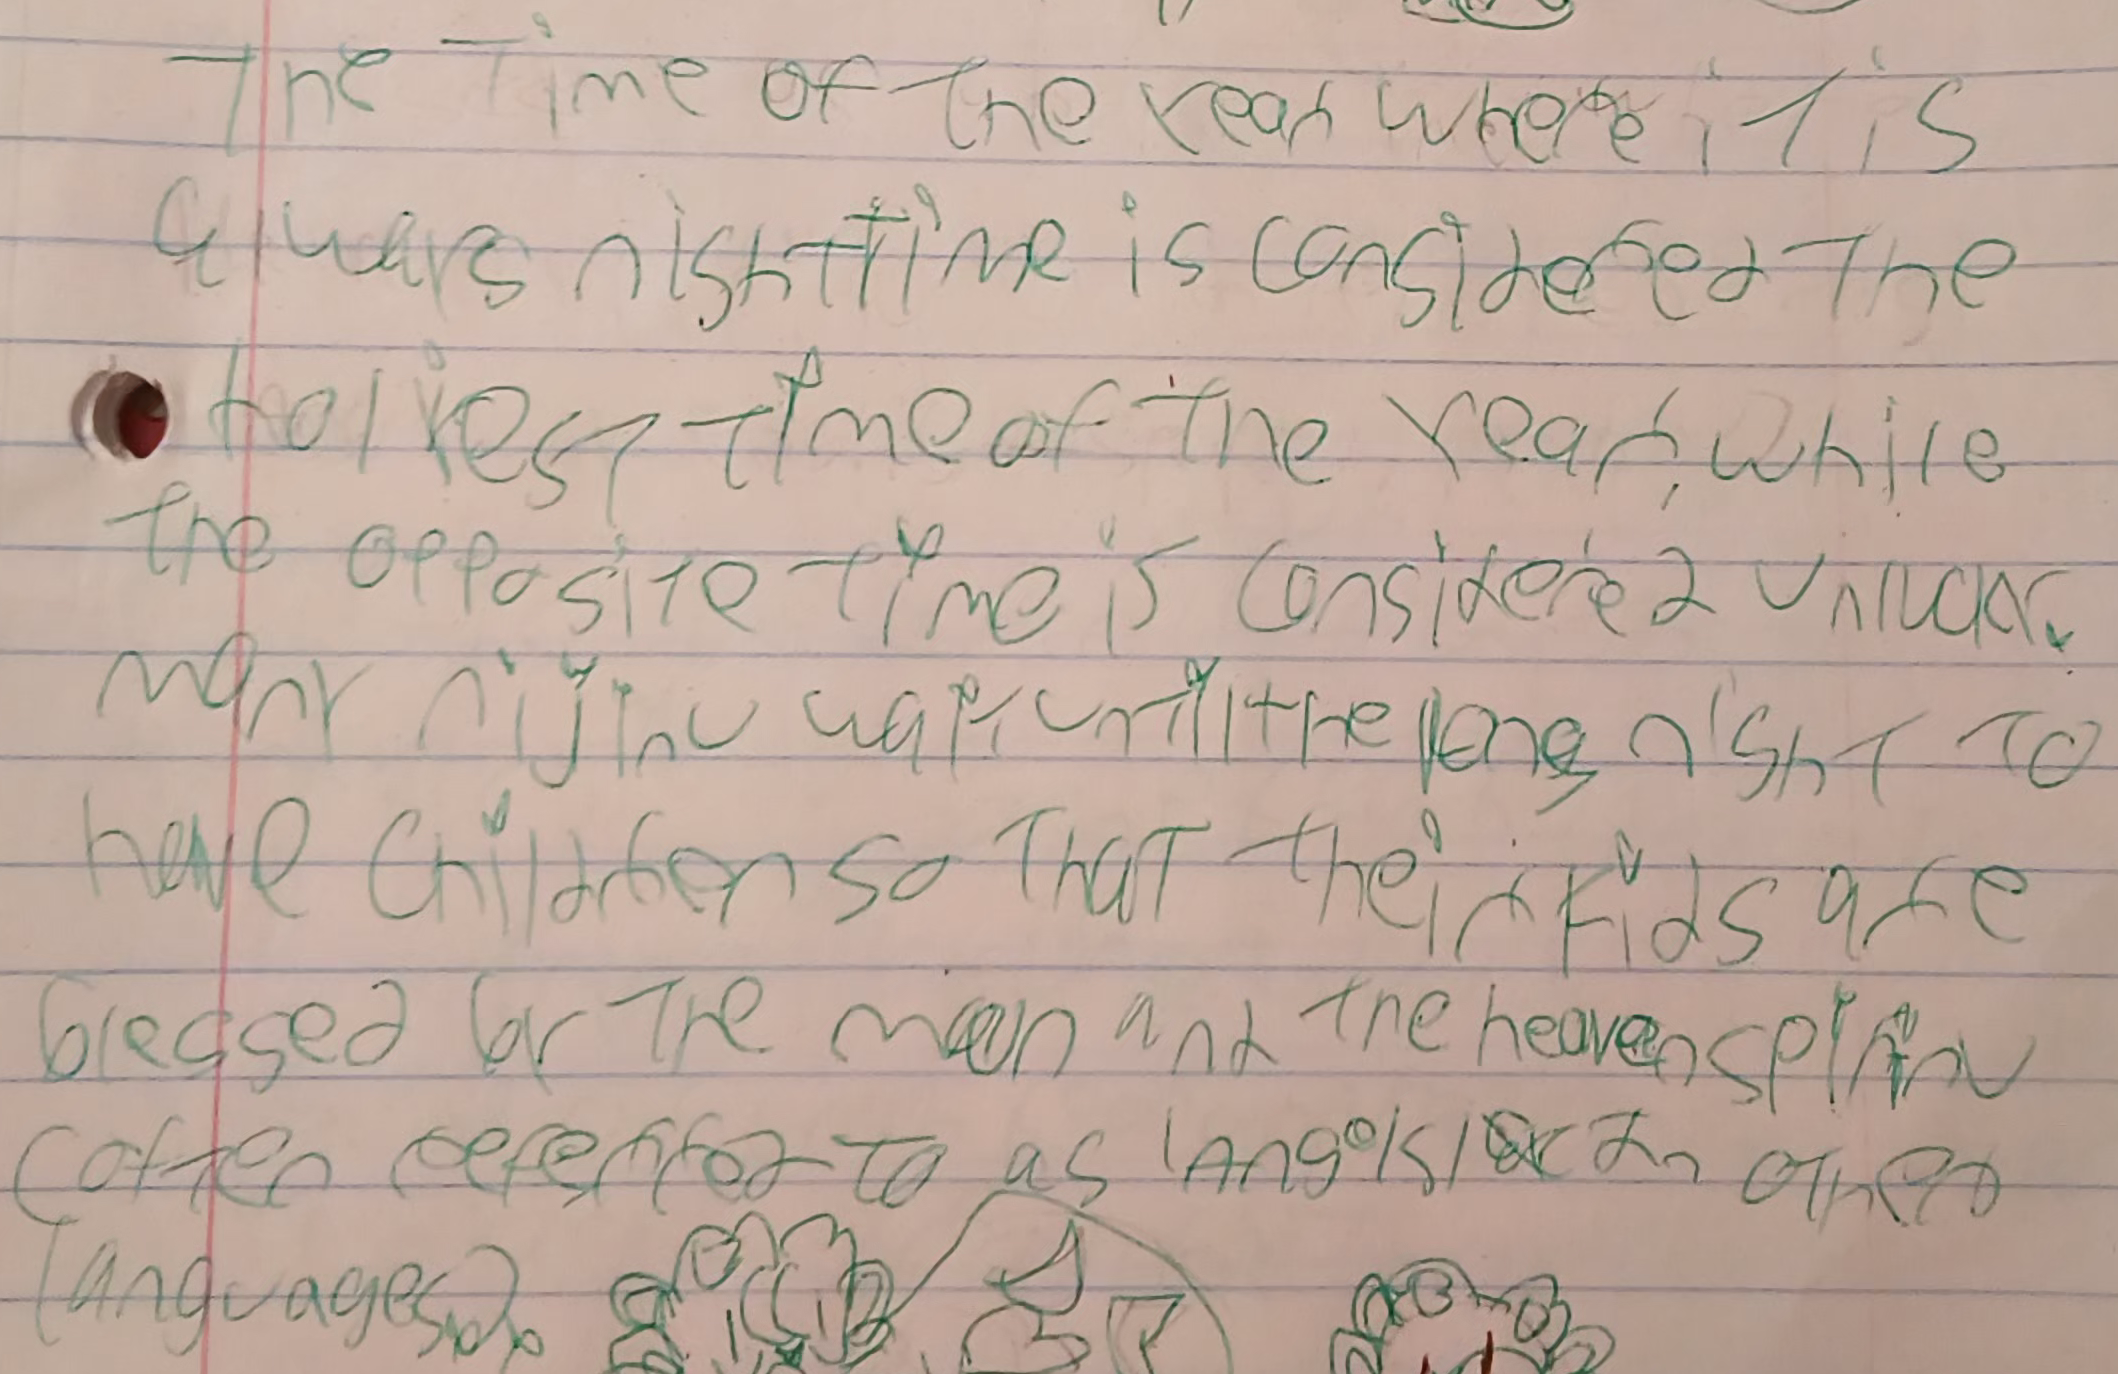 The Time of the year where it is
always nighttime is considered the
holyest time of the year, while
the opposite time is considered unlucky.
many nijinu wait untill the long night to
have Children so that their kids are
blessed by the moon and the heavens plinu
(often referred to as in other
languages).